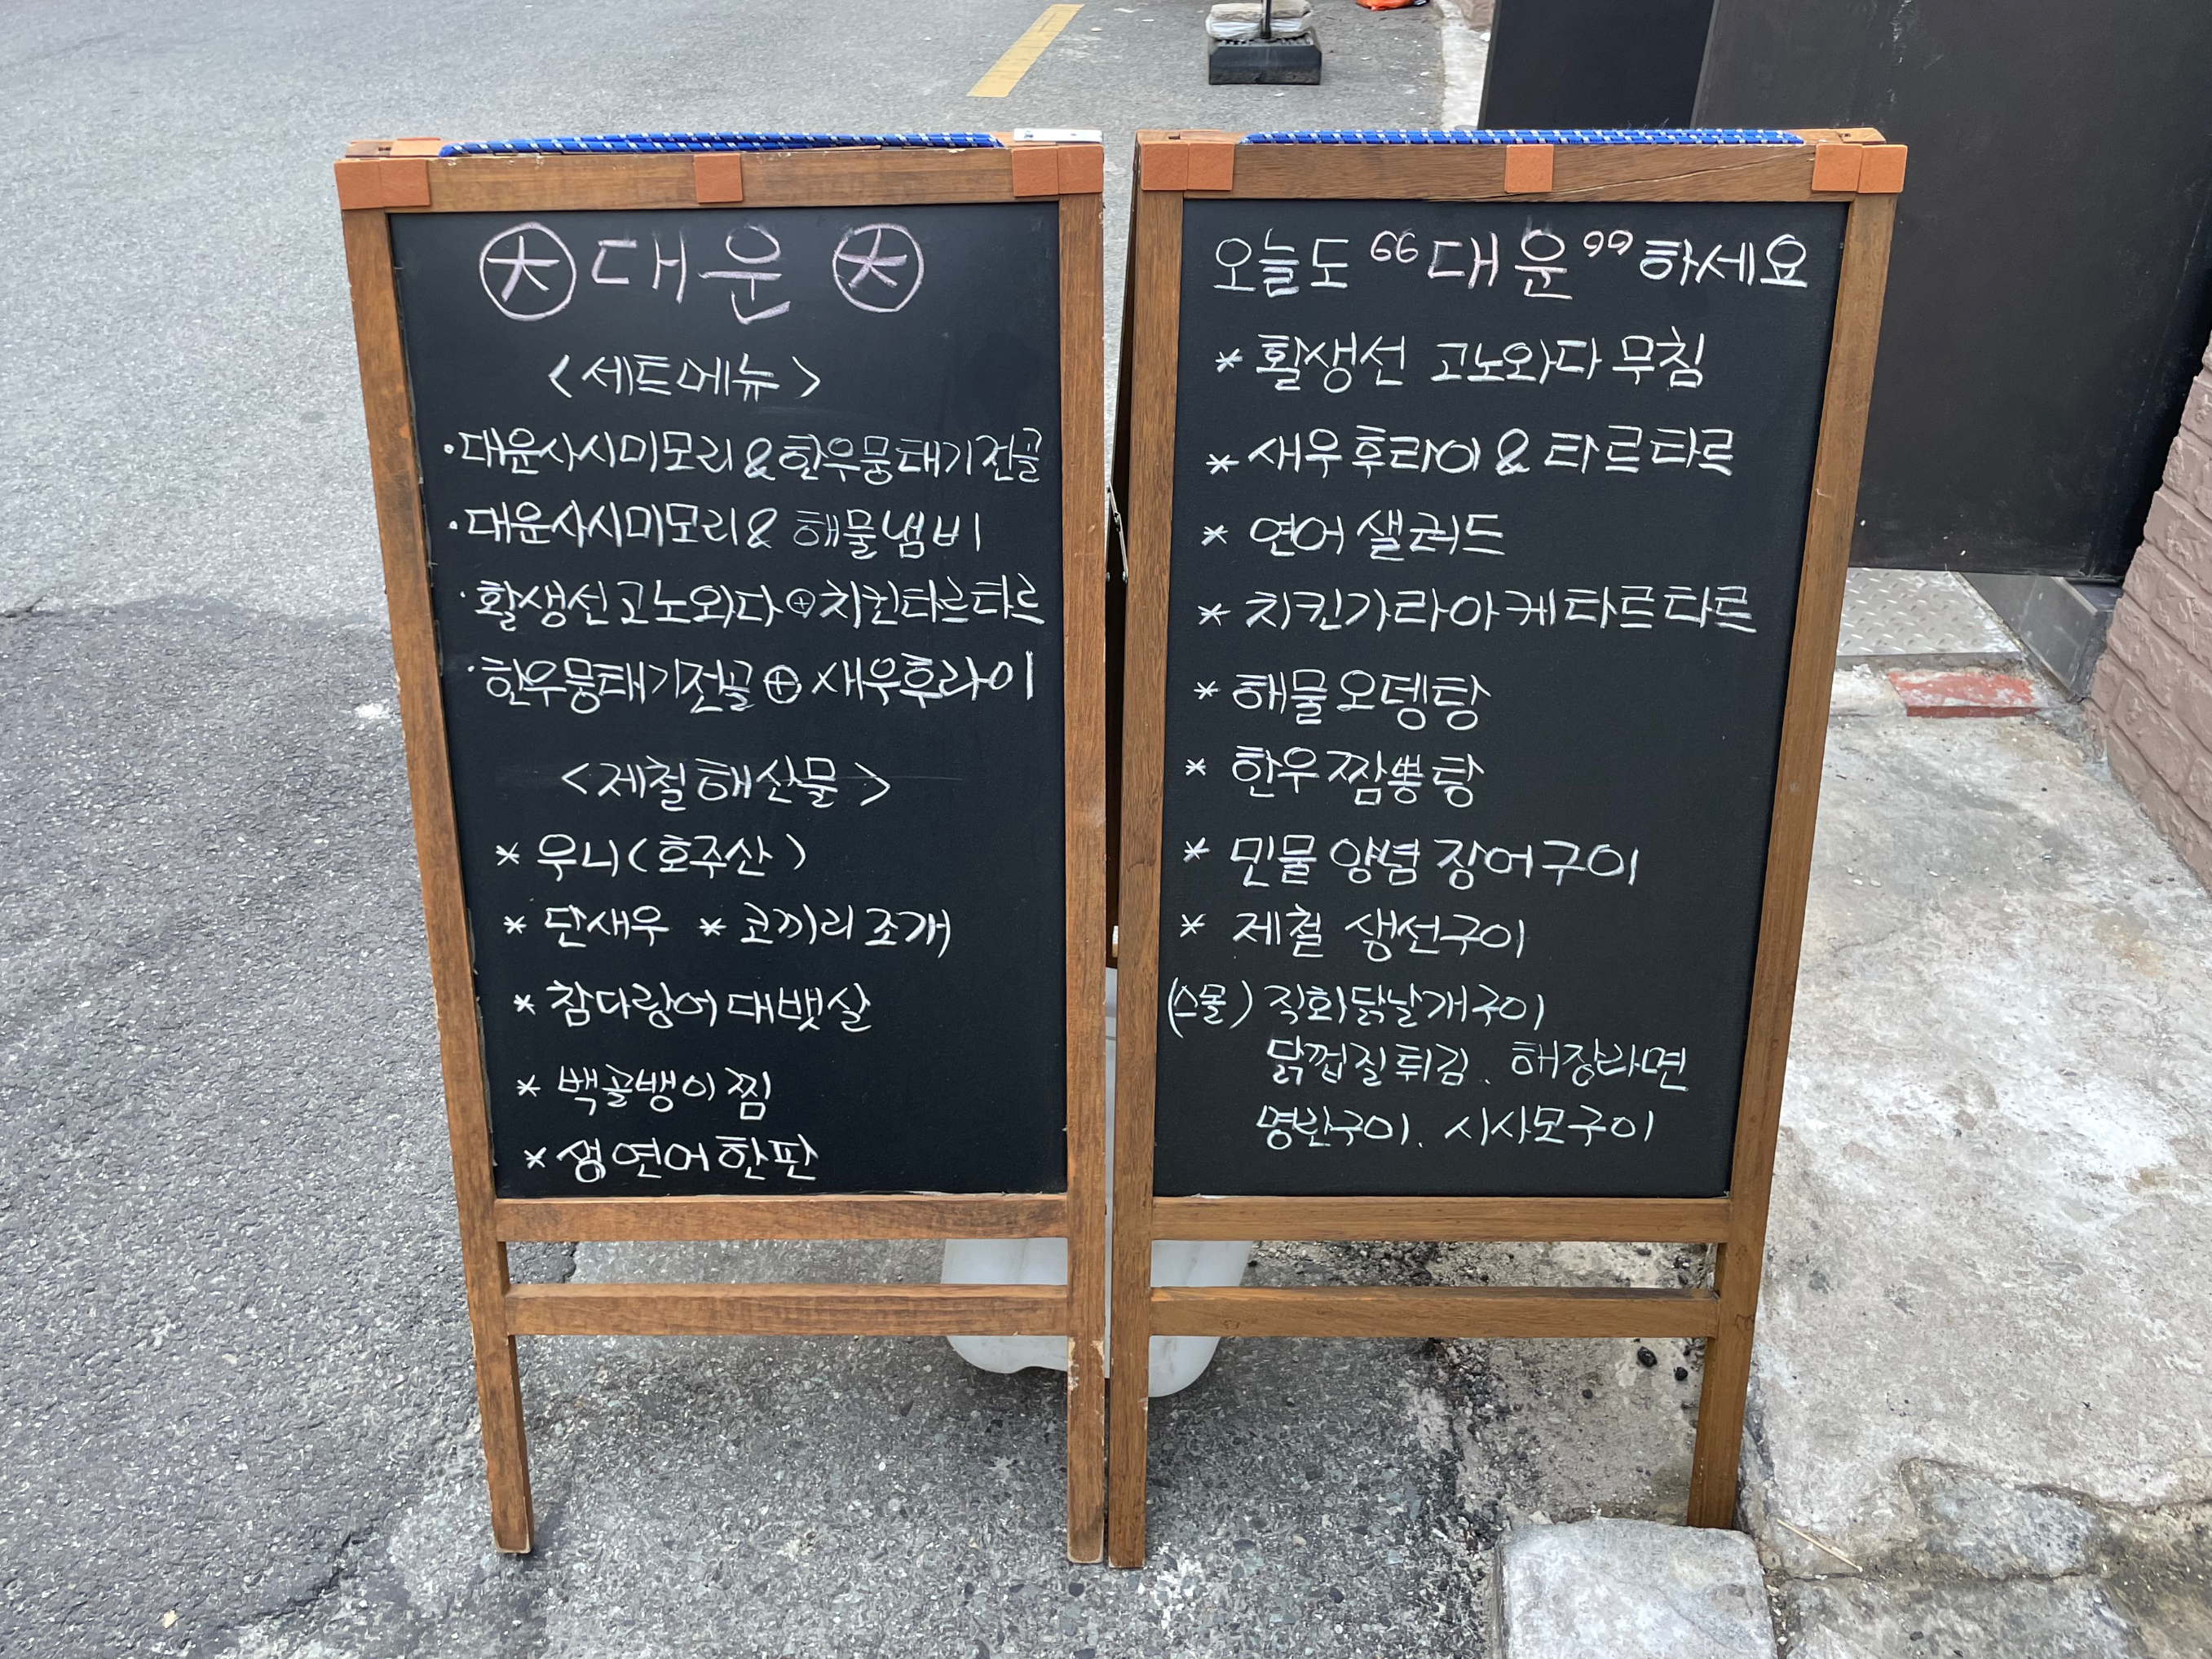 大 대운 大
<세트메뉴>
·대운사시미모리&한우뭉태기전골
·대운사시미모리&해물냄비
·활생선고노와다⊕치킨타르타르
·한우뭉태기전골⊕새우후라이
<제철해산물>
* 우니(호주산)
* 단새우 * 코끼리조개
* 참다랑어대뱃살
* 백골뱅이찜
* 생연어한판
오늘도 “대운” 하세요
* 활생선 고노와다 무침
* 새우후라이 & 타르타르
* 연어샐러드
* 치킨가라아케타르타르
* 해물오뎅탕
* 한우짬뽕탕
* 민물양념장어구이
* 제철 생선구이
(스몰) 직화닭날개구이
닭껍질튀김. 해장라면
명란구이. 시사모구이